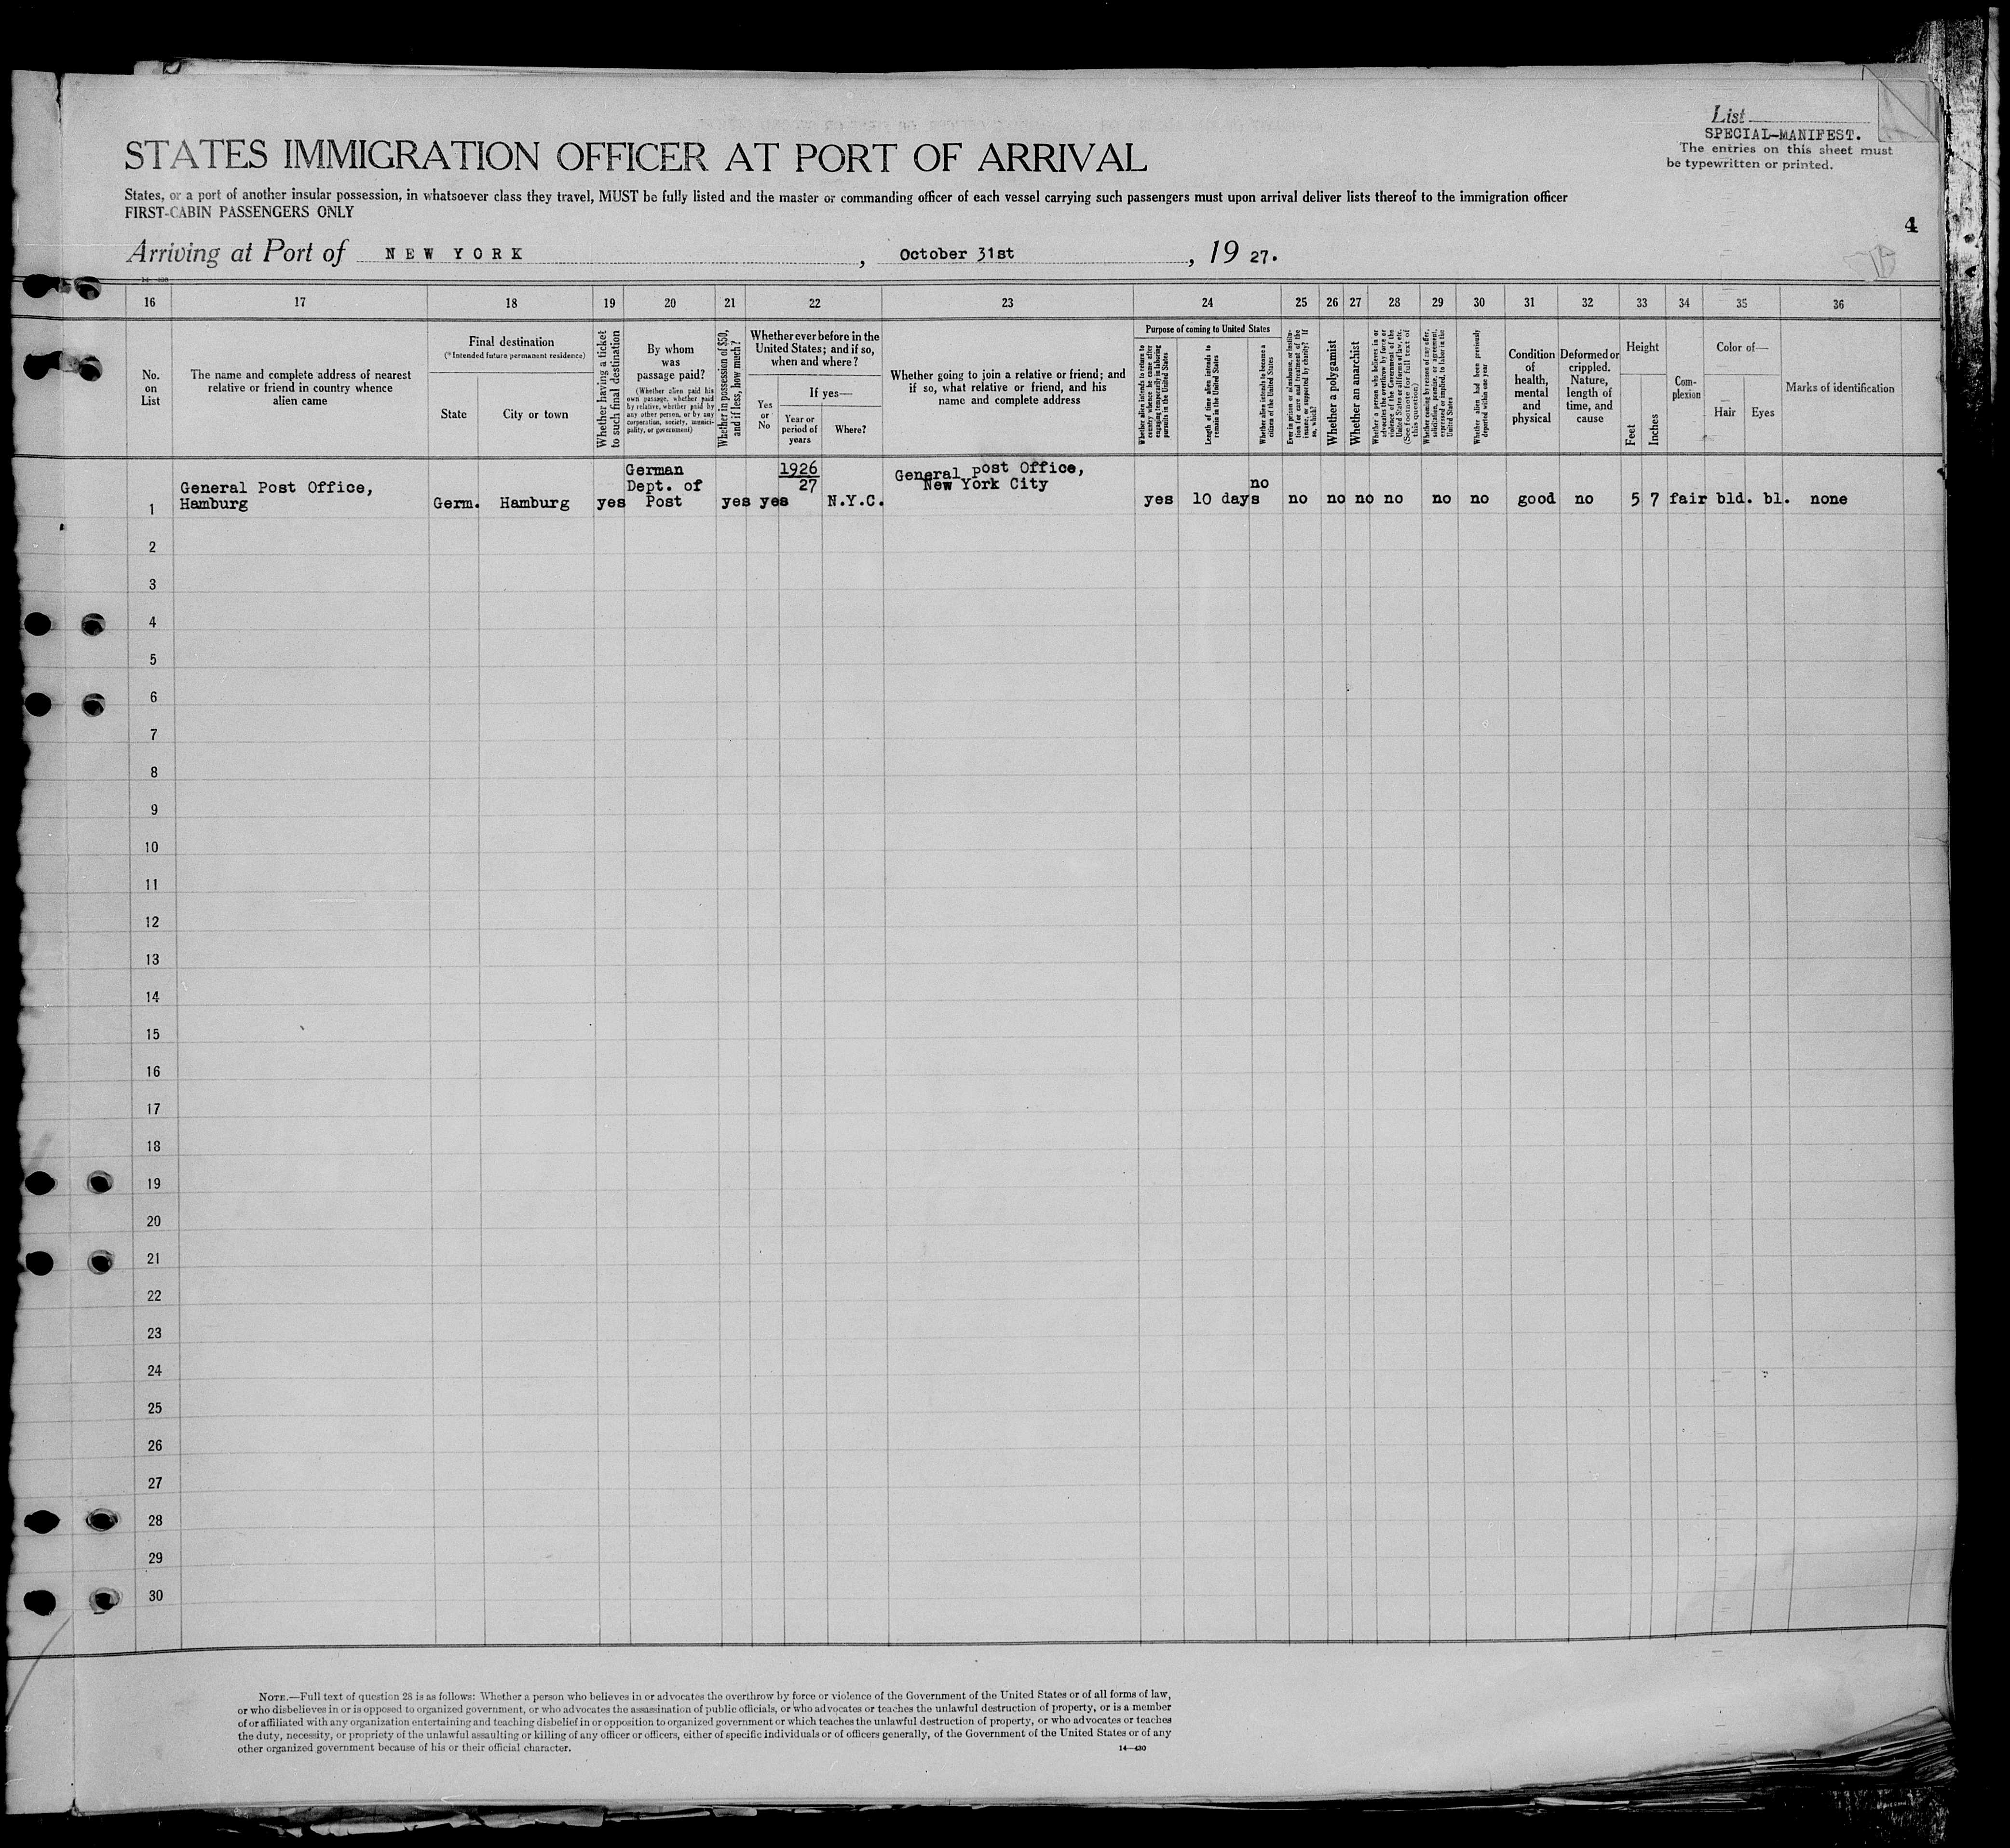 List
SPECIAL-MANIFEST.
The entries on this sheet must
be typewritten or printed.
STATES IMMIGRATION OFFICER AT PORT OF ARRIVAL
States, or a port of another insular possession, in whatsoever class they travel, MUST be fully listed and the master or commanding officer of each vessel carrying such passengers must upon arrival deliver lists thereof to the immigration officer
FIRST-CABIN PASSENGERS ONLY
4
Arriving at Port of NEW YORK, October 31st, 19 27.
16 17 18 19 20 21 22 23 24 25 26 27 28 29 30 31 32 33 34 35 36
No.
on
List
The name and complete address of nearest
relative or friend in country whence
alien came
Final destination
(*Intended future permanent residence)
State
City or town
Whether having a ticket
to such final destination
By whom
was
passage paid?
(Whether alien paid his
own passage, whether paid
by relative, whether paid by
any other person, or by any
corporation, society, munici-
pality, or government)
Whether in possession of $50,
and if less, how much?
Whether ever before in the
United States; and if so,
when and where?
Yes
or
No
If yes—
Year or
period of
years
Where?
Whether going to join a relative or friend; and
if so, what relative or friend, and his
name and complete address
Purpose of coming to United States
Whether alien intends to return to
country whence he came after
engaging temporarily in laboring
pursuits in the United States
Length of time alien intends to
remain in the United States
Whether alien intends to become a
citizen of the United States
Ever in prison or almshouse, or institu-
tion for care and treatment of the
insane, or supported by charity? If
so, which?
Whether a polygamist
Whether an anarchist
Whether a person who believes in or
advocates the overthrow by force or
violence of the Government of the
United States or all forms of law, etc.
(See footnote for full text of
this question)
Whether coming by reason of any offer,
solicitation, promise, or agreement,
expressed or implied, to labor in the
United States
Whether alien had been previously
deported within one year
Condition
of
health,
mental
and
physical
Deformed or
crippled.
Nature,
length of
time, and
cause
Height
Feet
Inches
Com-
plexion
Color of—
Hair Eyes
Marks of identification
1
General Post Office,
Hamburg
Germ. Hamburg yes
German
Dept. of
Post
yes yes
1926
27
N.Y.C.
General Post Office,
New York City
yes 10 days no no no no no no no good no 5 7 fair bld. bl. none
2
3
4
5
6
7
8
9
10
11
12
13
14
15
16
17
18
19
20
21
22
23
24
25
26
27
28
29
30
NOTE.—Full text of question 28 is as follows: Whether a person who believes in or advocates the overthrow by force or violence of the Government of the United States or of all forms of law,
or who disbelieves in or is opposed to organized government, or who advocates the assassination of public officials, or who advocates or teaches the unlawful destruction of property, or is a member
of or affiliated with any organization entertaining and teaching disbelief in or opposition to organized government or which teaches the unlawful destruction of property, or who advocates or teaches
the duty, necessity, or propriety of the unlawful assaulting or killing of any officer or officers, either of specific individuals or of officers generally, of the Government of the United States or of any
other organized government because of his or their official character.
14—430